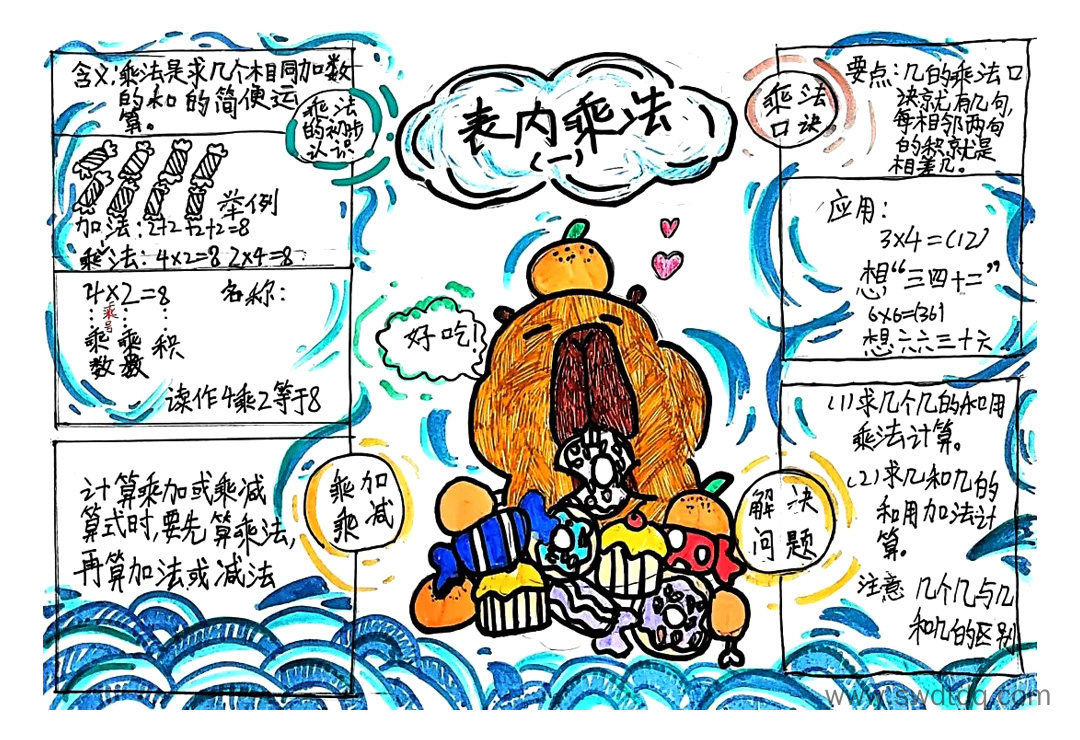 表内乘法
(一)
含义:乘法是求几个相同加数
的和的简便运
算。
乘法
的初步
认识
举例
加法:2+2+2+2=8
乘法:4×2=8 2×4=8
4×2=8 名称:
乘号
乘数 乘数 积
读作4乘2等于8
乘加
乘减
计算乘加或乘减
算式时,要先算乘法,
再算加法或减法
好吃!
乘法
口诀
要点:几的乘法口
决就有几句,
每相邻两句
的积就是
相差几。
应用:
3×4=(12)
想“三四十二”
6×6=(36)
想六六三十六
解决
问题
(1)求几个几的和用
乘法计算。
(2)求几和几的
和用加法计
算。
注意 几个几与几
和几的区别
www.swdtdq.com